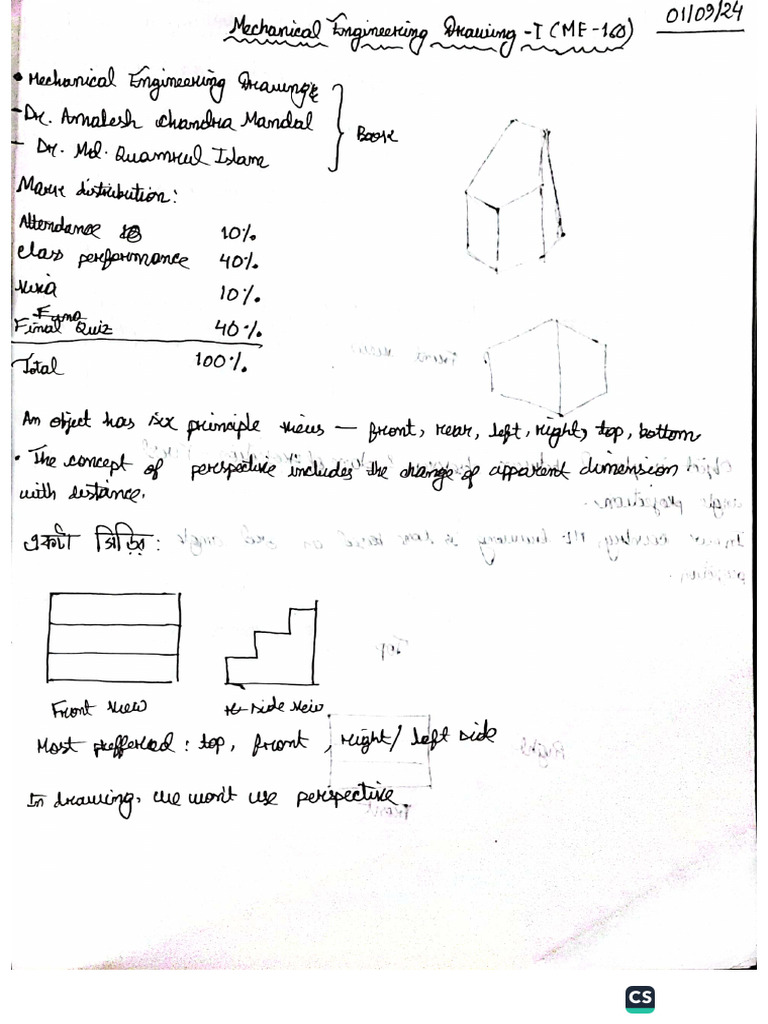 01/09/24
Mechanical Engineering Drawing -I (ME -160)
• Mechanical Engineering Drawing
- Dr. Amalesh Chandra Mandal
- Dr. Md. Quamrul Islam
Book
Mark distribution:
Attendance 10%
Class performance 40%
Viva 10%
Final Quiz 40%
Total 100%
An object has six principle views — front, rear, left, right, top, bottom
• The concept of perspective includes the change of apparent dimension
with distance.
একটা সিঁড়ি:
Front view
R-side view
Most prefferred : top, front, right/left side
In drawing, we won't use perspective.
CS